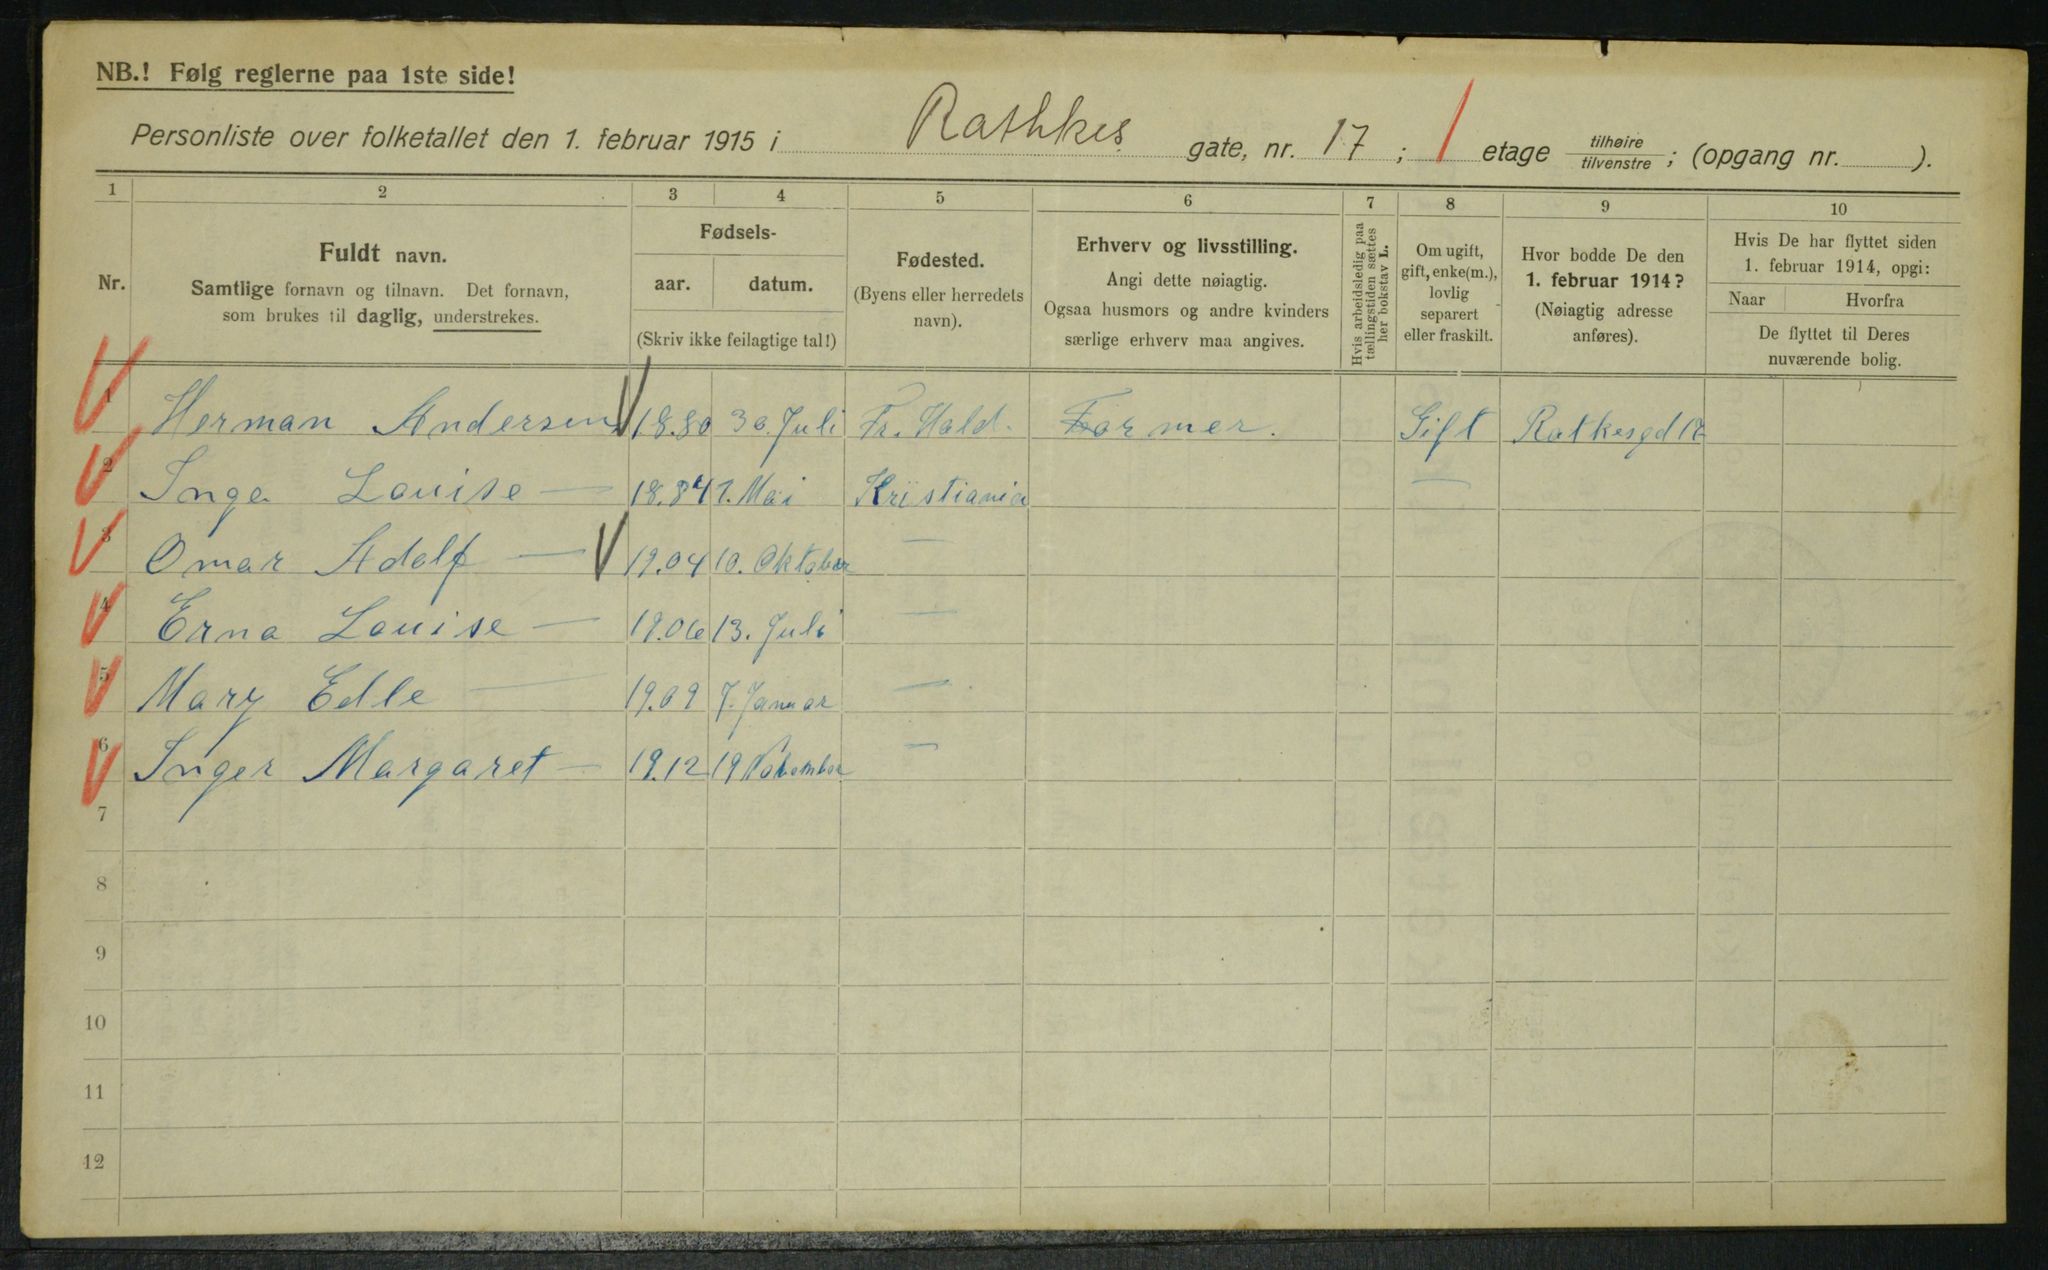 NB.! Følg reglerne paa 1ste side!
Personliste over folketallet den 1. februar 1915 i Rathkes gate, nr. 17 ; 1 etage tilhøire tilvenstre ; (opgang nr. ).
1 2 3 4 5 6 7 8 9 10
Nr.
Fuldt navn.
Samtlige fornavn og tilnavn. Det fornavn,
som brukes til daglig, understrekes.
Fødsels-
aar. datum.
(Skriv ikke feilagtige tal!)
Fødested.
(Byens eller herredets
navn).
Erhverv og livsstilling.
Angi dette nøiagtig.
Ogsaa husmors og andre kvinders
særlige erhverv maa angives.
Hvis arbeidsledig paa
tællingstiden sættes
her bokstav L.
Om ugift,
gift, enke(m.),
lovlig
separert
eller fraskilt.
Hvor bodde De den
1. februar 1914?
(Nøiagtig adresse
anføres).
Hvis De har flyttet siden
1. februar 1914, opgi:
Naar Hvorfra
De flyttet til Deres
nuværende bolig.
1 Herman Andersen 18.80 30. Juli Fr. Hald. Former. Gift Ratkesgd 17
2 Inga Louise — 18.84 1. Mai Kristiania —
3 Omar Adolf — 19.04 10. Oktober —
4 Erna Louise — 19.06 13. Juli —
5 Mary Edle — 19.09 7. Januar —
6 Inger Margaret — 19.12 19 November —
7
8
9
10
11
12